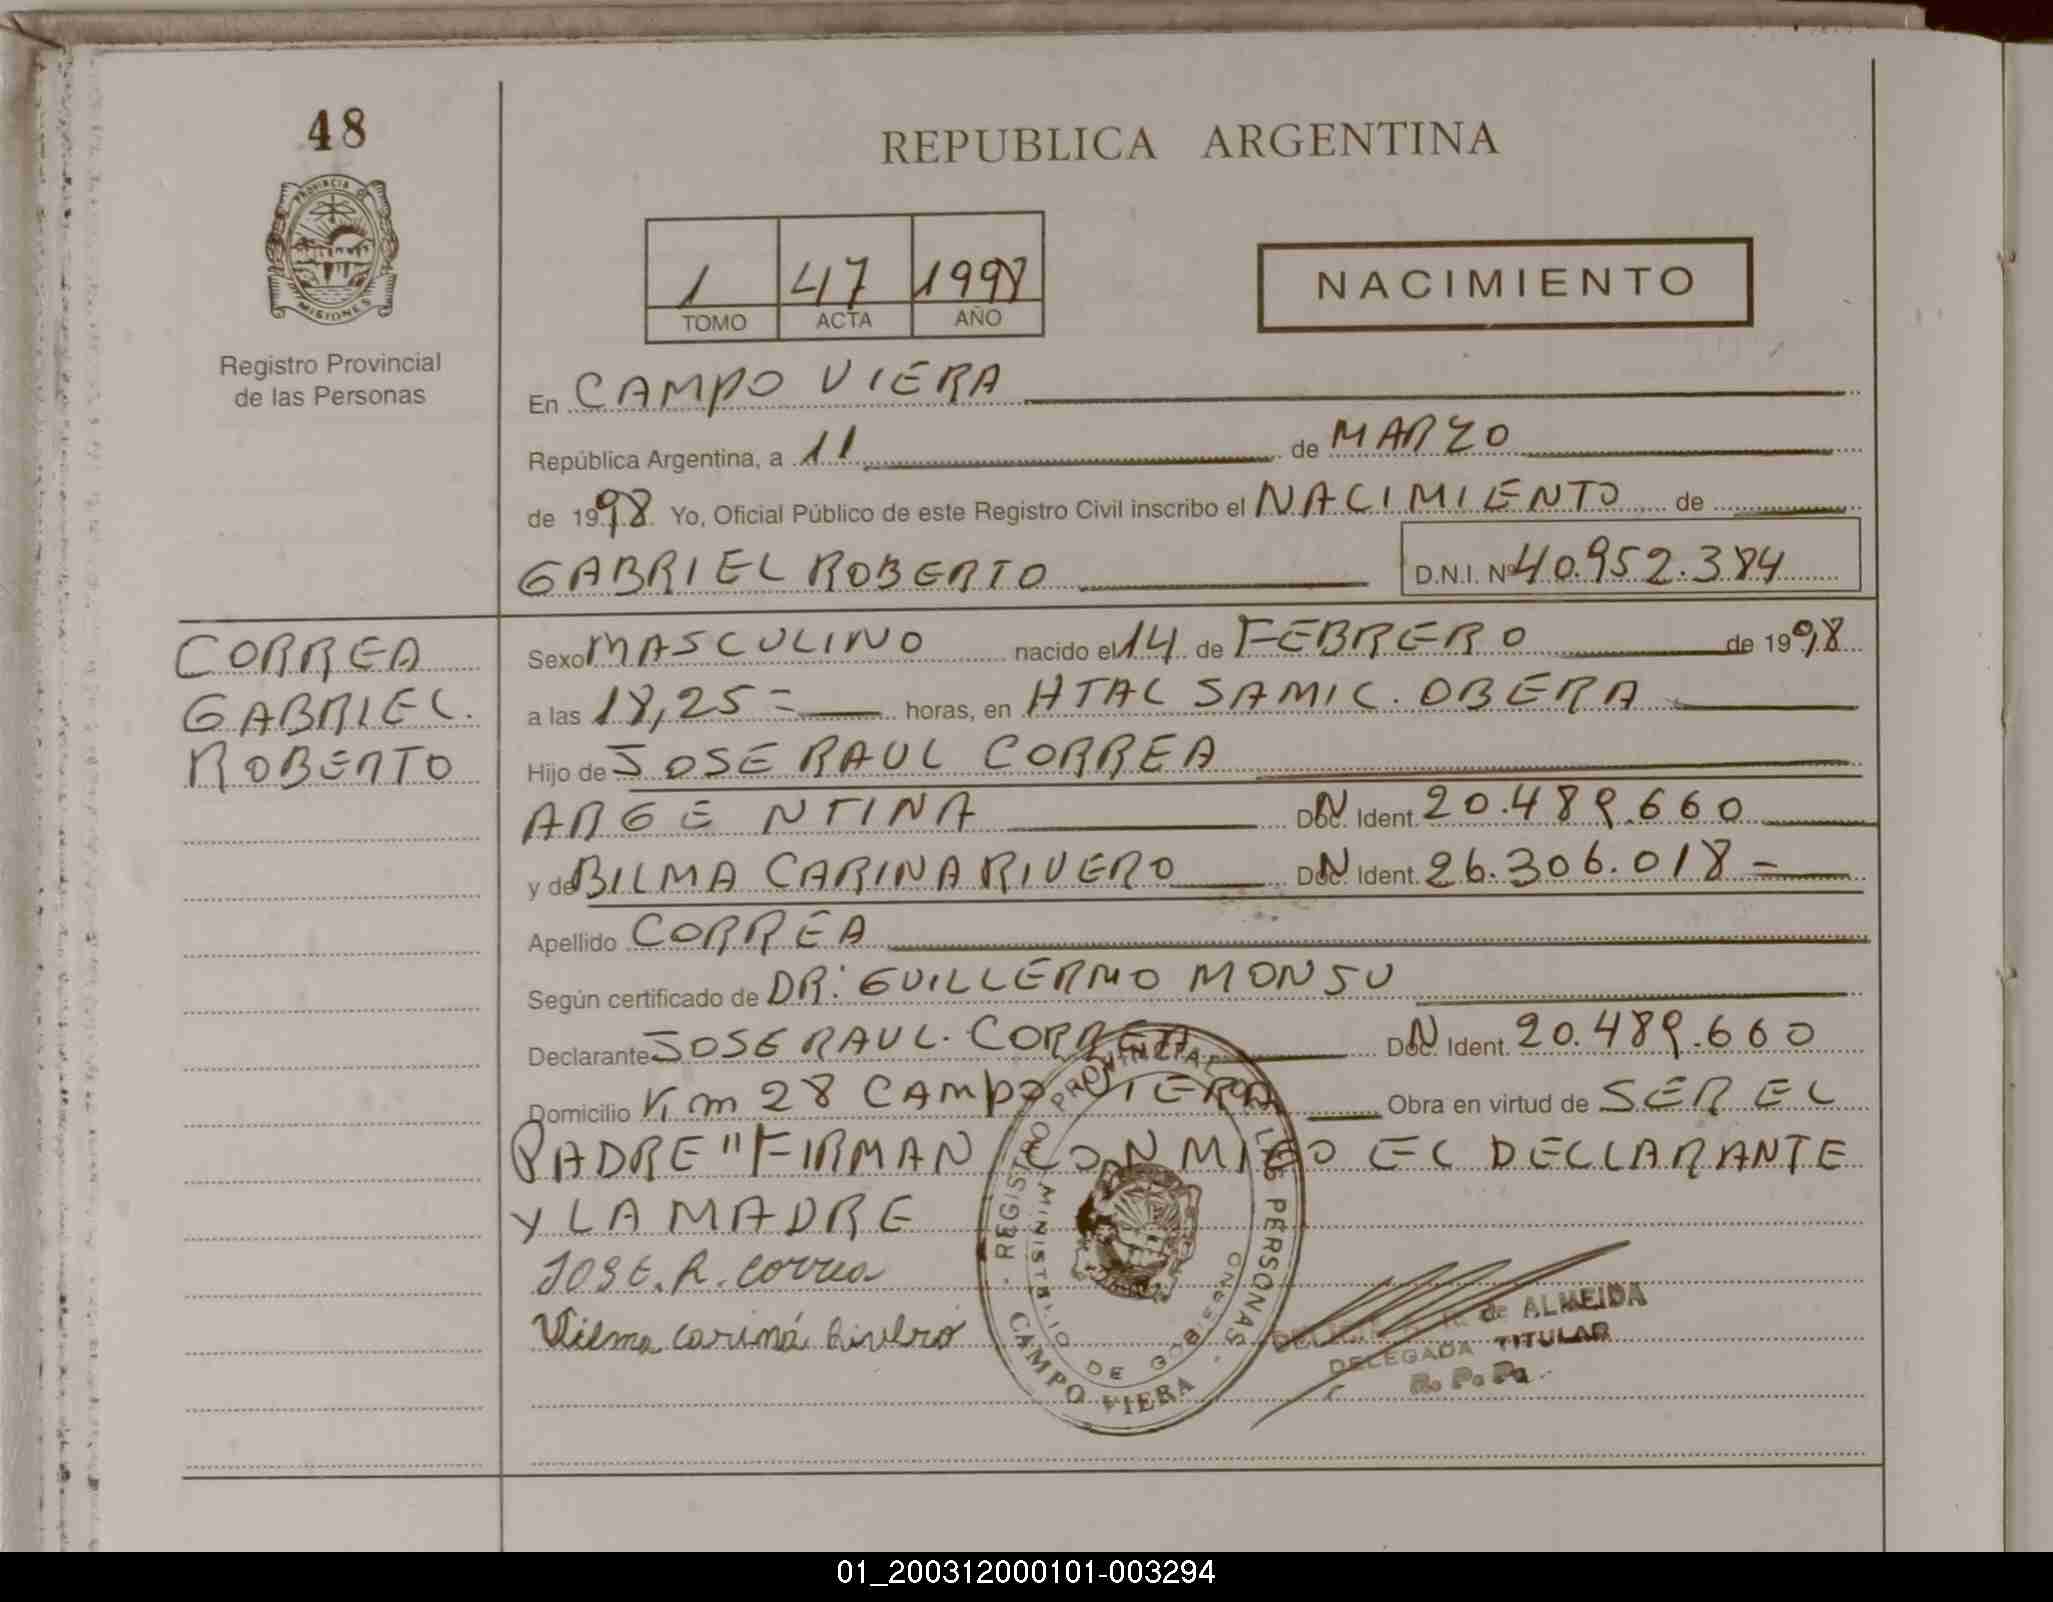 48
PROVINCIA DE
MISIONES
Registro Provincial
de las Personas
REPUBLICA ARGENTINA
1 47 1998
TOMO ACTA AÑO
NACIMIENTO
En CAMPO VIERA
República Argentina, a 11 de MARZO
de 1998 Yo, Oficial Público de este Registro Civil inscribo el NACIMIENTO de
GABRIEL ROBERTO D.N.I. Nº 40.952.384
CORREA
GABRIEL.
ROBERTO
Sexo MASCULINO nacido el 14 de FEBRERO de 1998
a las 18,25 = horas, en HTAL SAMIC. OBERA
Hijo de JOSE RAUL CORREA
ARGENTINA DN Ident. 20.489.660
y de BILMA CARINA RIVERO DN Ident. 26.306.018 =
Apellido CORREA
Según certificado de DR: GUILLERMO MONSU
Declarante JOSE RAUL. CORREA DN Ident. 20.489.660
Domicilio Km 28 CAMPO VIERA Obra en virtud de SER EL
PADRE "FIRMAN CONMIGO EL DECLARANTE
Y LA MADRE
JOSE. R. Correa
Vilma cariná Rivero
REGISTRO PROVINCIAL DE LAS PERSONAS
MINISTERIO DE GOBIERNO
CAMPO VIERA
de ALMEIDA
DELEGADA TITULAR
R. P. P.
01_200312000101-003294